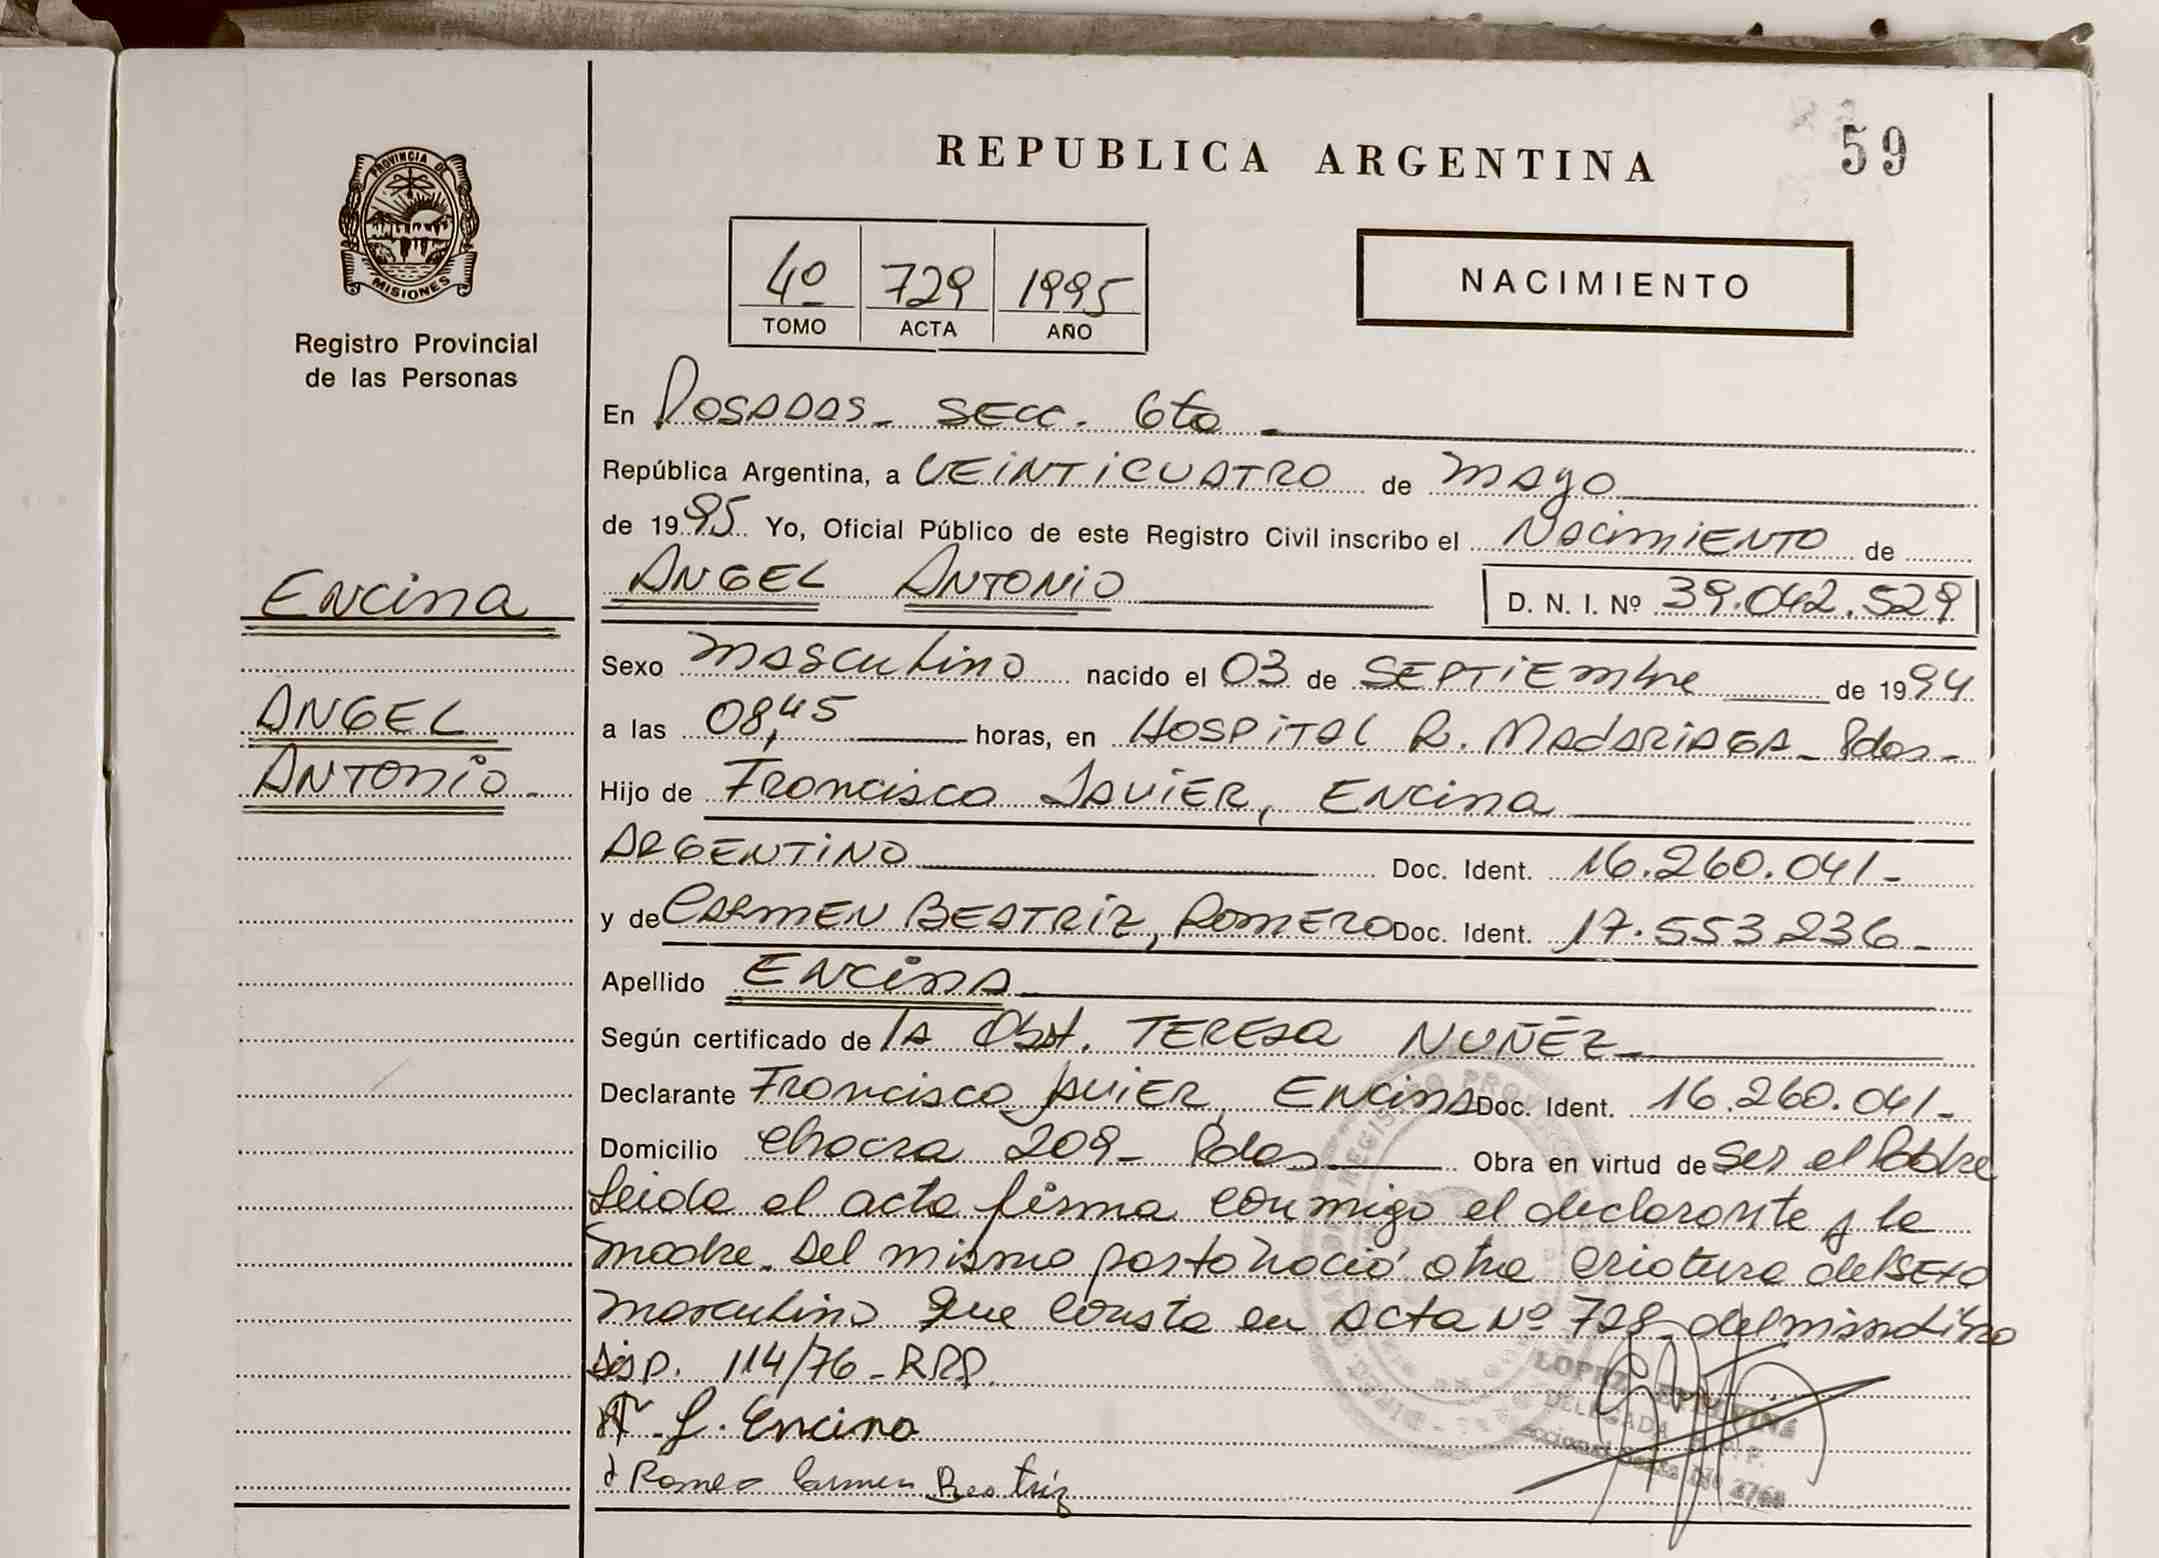 REPUBLICA ARGENTINA
59
PROVINCIA DE
MISIONES
Registro Provincial
de las Personas
4º 729 1995
TOMO ACTA AÑO
NACIMIENTO
En Posadas - Secc. 6ta -
República Argentina, a VEINTICUATRO de Mayo
de 1995 Yo, Oficial Público de este Registro Civil inscribo el Nacimiento de
Encina
ANGEL ANTONIO D. N. I. Nº 39.042.529
Sexo masculino nacido el 03 de SEPTIEmbre de 1994
ANGEL
a las 08,45 horas, en HOSPITAL R. MADARIAGA - Pdas -
ANTONIO -
Hijo de Francisco JAVIER, Encina
ARGENTINO Doc. Ident. 16.260.041-
y de CARMEN BEATRIZ, ROMERO Doc. Ident. 17.553.236-
Apellido ENCINA
Según certificado de la Obst. TERESA NUÑEZ -
Declarante Francisco JAVIER, ENCINA Doc. Ident. 16.260.041-
Domicilio Chacra 209 - Pdas Obra en virtud de ser el Padre
Leida el acta firma conmigo el declarante y la
madre. Del mismo parto nació otra criatura del SEXO
masculino que consta en Acta Nº 728 del mismo Libro
Disp. 114/76 - RPP.
J. Encina
Romero Carmen Beatriz
REGISTRO PROVINCIAL
LOPEZ
DELEGADA R.P.P.
Nº 2768